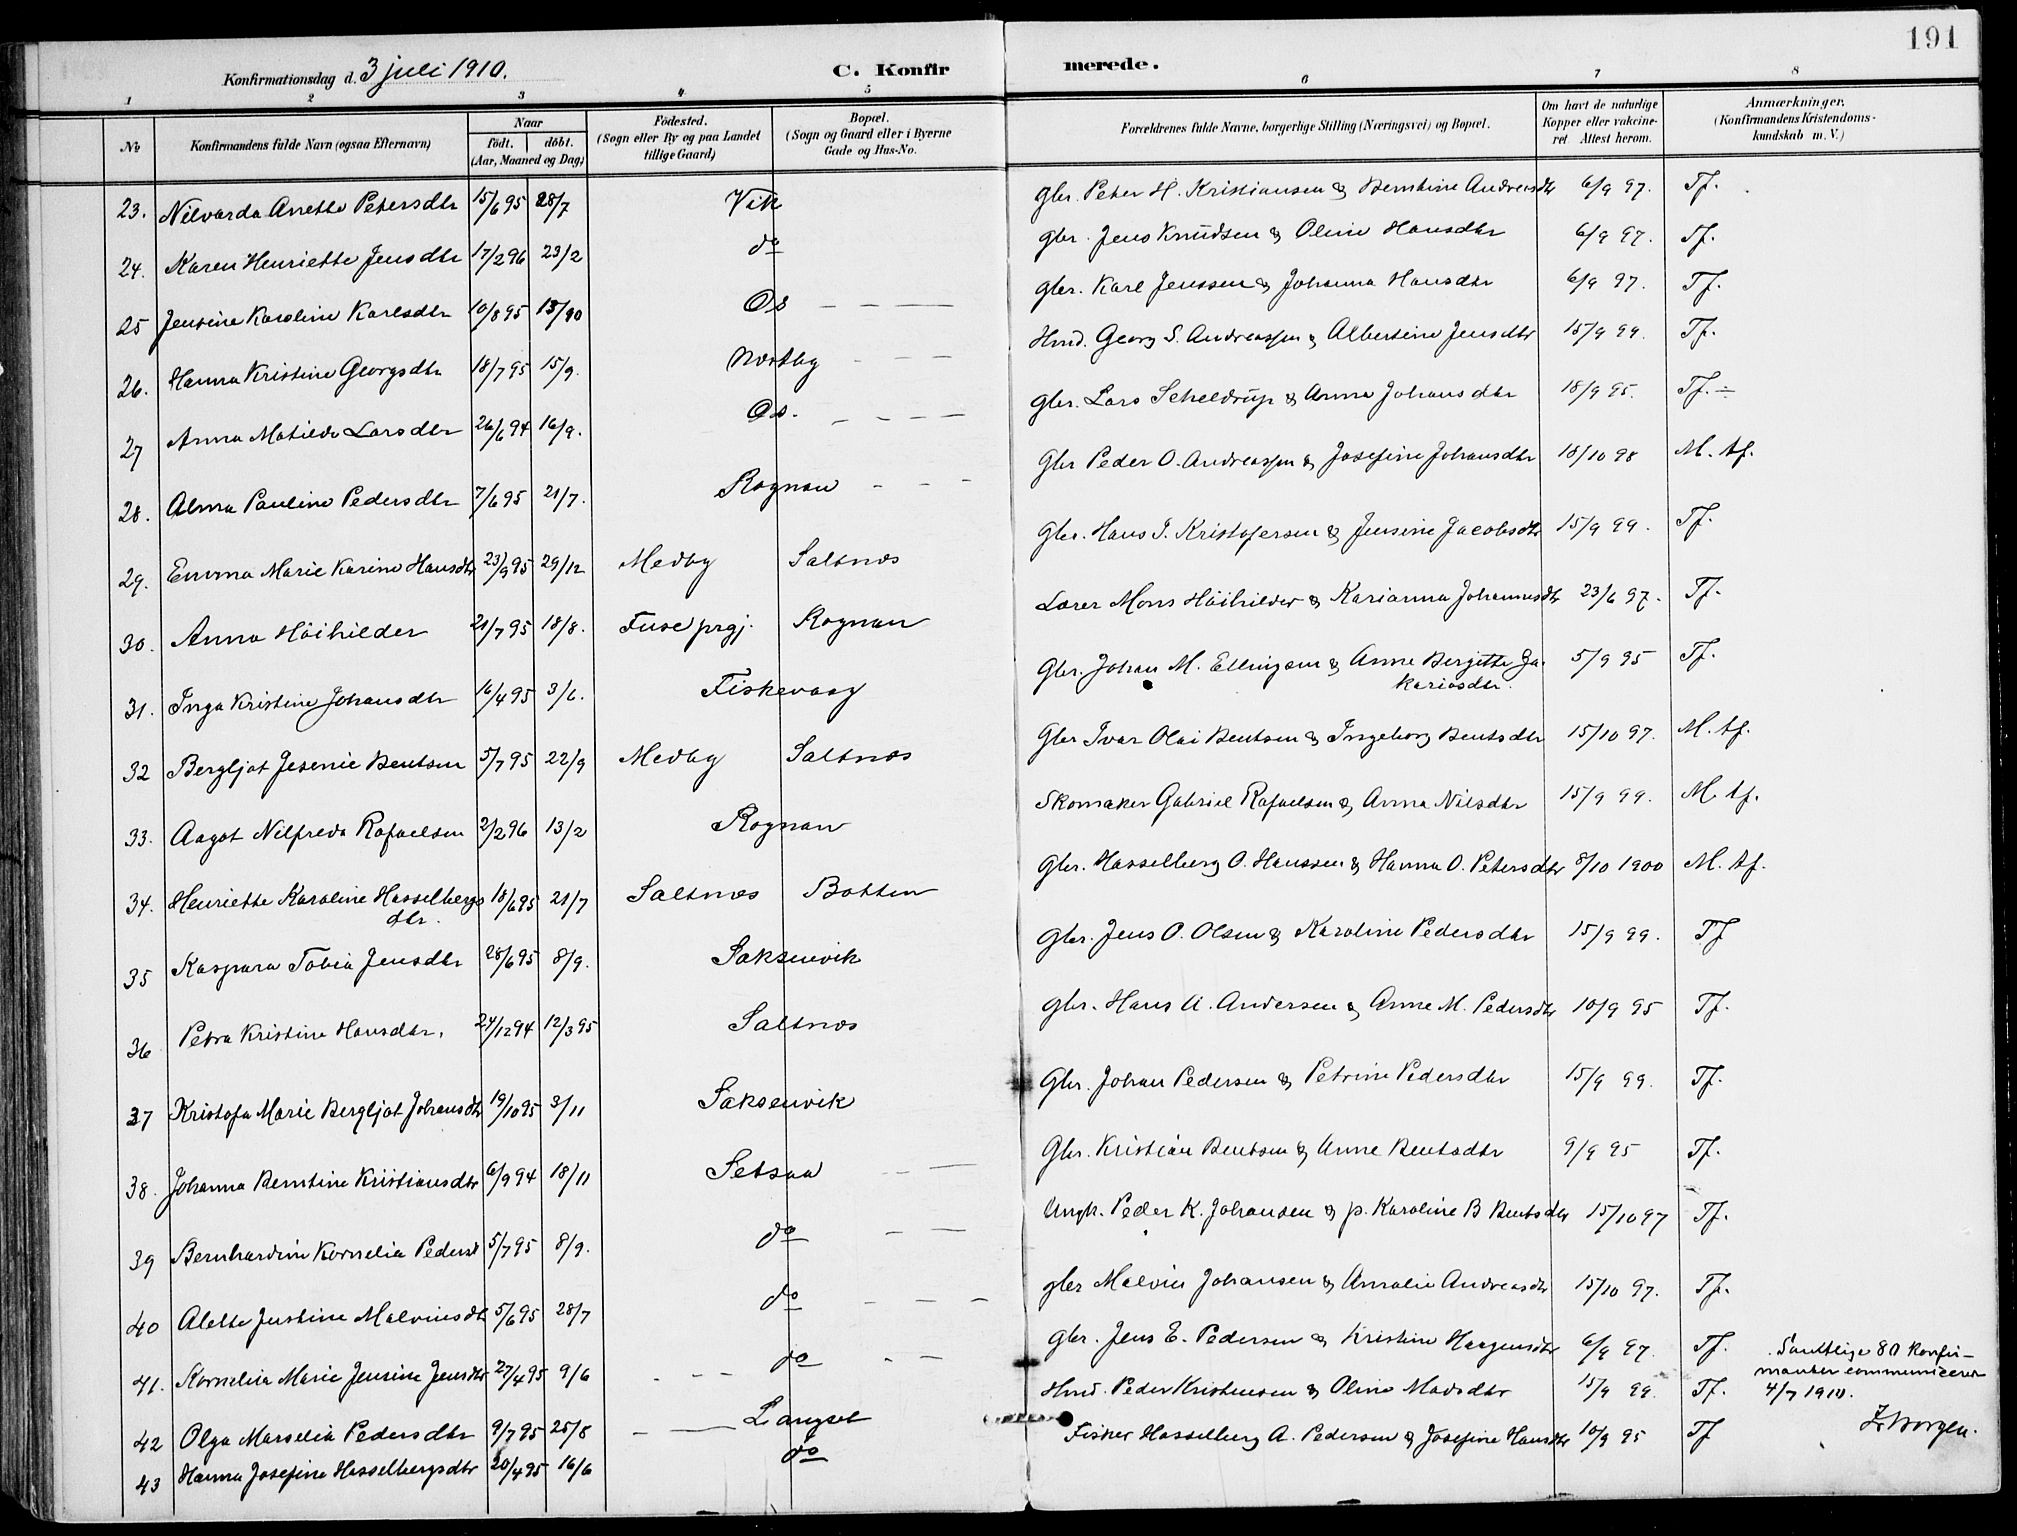 191
Konfirmationsdag d. 3 juli 1910.
C. Konfirmerede.
1 2 3 4 5 6 7 8
No
Konfirmandens fulde Navn (ogsaa Efternavn)
Naar
født. | døbt.
(Aar, Maaned og Dag)
Fødested.
(Sogn eller By og paa Landet
tillige Gaard)
Bopæl.
(Sogn og Gaard eller i Byerne
Gade og Hus-No.
Forældrenes fulde Navne, borgerlige Stilling (Næringsvei) og Bopæl.
Om havt de naturlige
Kopper eller vakcine-
ret Attest herom.
Anmærkninger.
(Konfirmandens Kristendoms-
kundskab m. V.)
23. Nilvarda Anette Petersdtr 15/6 95 28/7 Vik Gbr. Peter H. Kristiansen & Berntine Andreasdtr 6/9 97. Tf.
24. Karen Henriette Jensdtr 17/2 96 23/2 do Gbr. Jens Knudsen & Oline Hansdtr 6/9 97. Tf.
25 Jensine Karoline Karlsdtr 10/8 95 13/10 Os Gbr. Karl Jenssen & Johanna Hansdtr 6/9 97. Tf.
26. Hanna Kristine Georgsdtr 18/7 95 15/9. Nestby Hmd. Georg S. Andreassen & Albertine Jensdtr 15/9 99. Tf.
27 Anna Matilde Larsdtr 26/6 94 16/9. Os. Gbr. Lars Scheldrup & Anna Johansdtr 18/9 95. Tf. ÷
28. Alma Pauline Pedersdtr 7/6 95 21/7. Rognan Gbr Peder O. Andreassen & Josefine Johansdtr 18/10 98 M. tf.
29. Emma Marie Karine Hansdtr 23/9 95 29/12 Medby Saltnes Gbr. Hans J. Kristofersen & Jensine Jacobsdtr 15/9 99. Tf.
30. Anna Höihilder 21/7 95 18/8. Fuse prgj. Rognan Lærer Mons Höihilder & Karianna Johannesdtr 23/6 97. Tf.
31. Inga Kristine Johansdtr 16/4 95 3/6. Fiskevaag Gbr. Johan M. Ellingsen & Anne Bergitte Za-
kariasdtr. 5/9 95 Tf.
32 Bergljot Jesenie Bentsen 5/7 95 22/9 Medby Saltnes Gbr Ivar Olai Bentsen & Ingeborg Bentsdtr 15/10 97. M. tf.
33. Aagot Nilfreda Rafaelsen 2/2 96 13/2 Rognan Skomaker Gabriel Rafaelsen & Anna Nilsdtr 15/9 99. M. tf.
34. Henriette Karoline Hasselbergs
dtr. 18/6 95 21/7 Saltnes Botten Gbr. Hasselberg O. Hanssen & Hanna O. Petersdtr 8/10 1900 M. tf.
35 Kaspara Tobia Jensdtr 28/6 95 8/9. Saksenvik Gbr. Jens O. Olsen & Karoline Pedersdtr 15/9 99. Tf
36 Petra Kristine Hansdtr. 24/12 94 12/3 95 Saltnes Gbr. Hans A. Andersen & Anne M. Pedersdtr 10/9 95 Tf.
37 Kristofa Marie Bergljot Johansdtr 19/10 95 3/11 Saksenvik Gbr. Johan Pedersen & Petrine Pedersdtr 15/9 99. Tf.
38. Johanna Berntine Kristiansdtr 6/9 94 18/11 Setsaa Gbr. Kristian Bentsen & Anne Bentsdtr 9/9 95 Tf.
39 Bernhardine Kornelia Pedersd 5/7 95 8/9. do Ungk. Peder K. Johansen & p. Karoline B Bentsdtr 15/10 97 Tf.
40 Alette Justine Malvinsdtr 5/6 95 28/7 do gbr Malvin Johansen & Amalie Andreasdtr 15/10 97. Tf.
41. Kornelia Marie Jensine Jensdtr 27/4 95 9/6 do Gbr. Jens E. Pedersen & Kristine Haagensdtr 6/9 97. Tf.
42 Olga Marselia Pedersdtr 9/7 95 25/8 Langset Hmd. Peder Kristensen & Oline Madsdtr 15/9 99. Tf.
43 Hanna Josefine Hasselbergsdtr 20/4 95 16/6 do Fisker Hasselberg A. Pedersen & Josefine Hansdtr 10/9 95 Tf
Samtlige 80 konfir-
manter communicerer
4/7 1910.
Borgen.